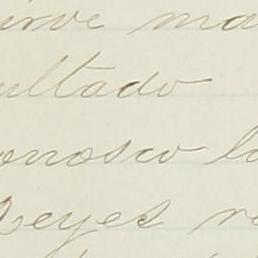 irve ma
ultado
onozco la
Reyes re